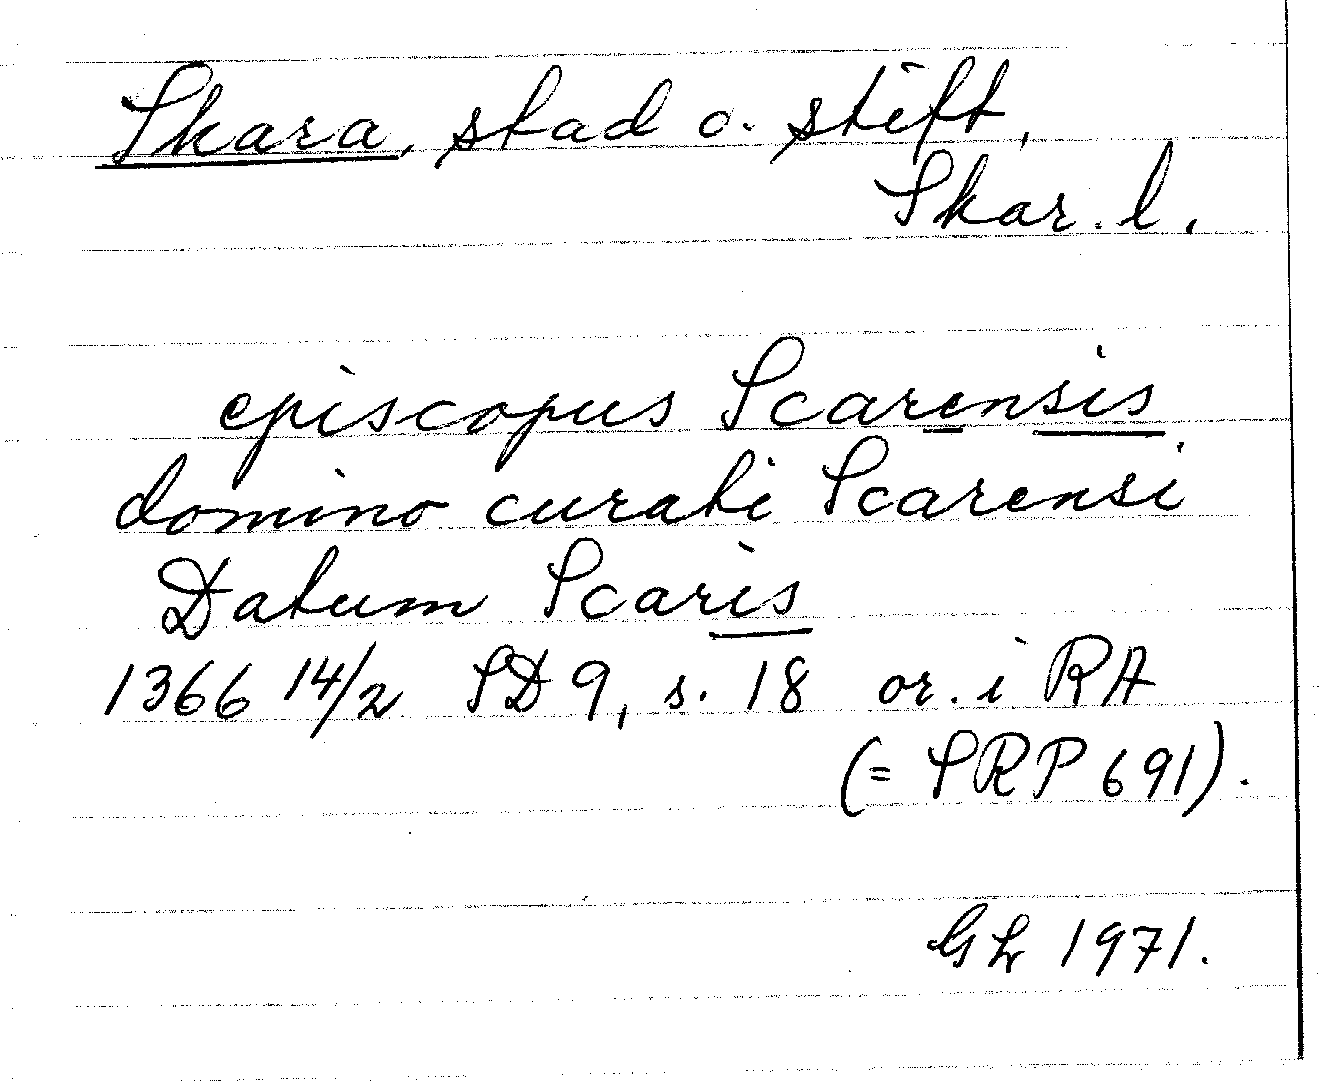 Skara, stad o. stift,
Skar. l.
episcopus Scarensis
domino curati Scarensi
Datum Scaris
1366 14/2 SD 9, s. 18 or. i RA
(= SRP 691).
GL 1971.